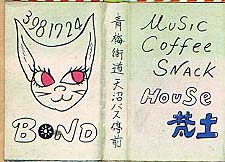 3981724
BOND
青梅街道天沼バス停前
MUSiC
COFFEE
SNACK
HOUSE
梵土